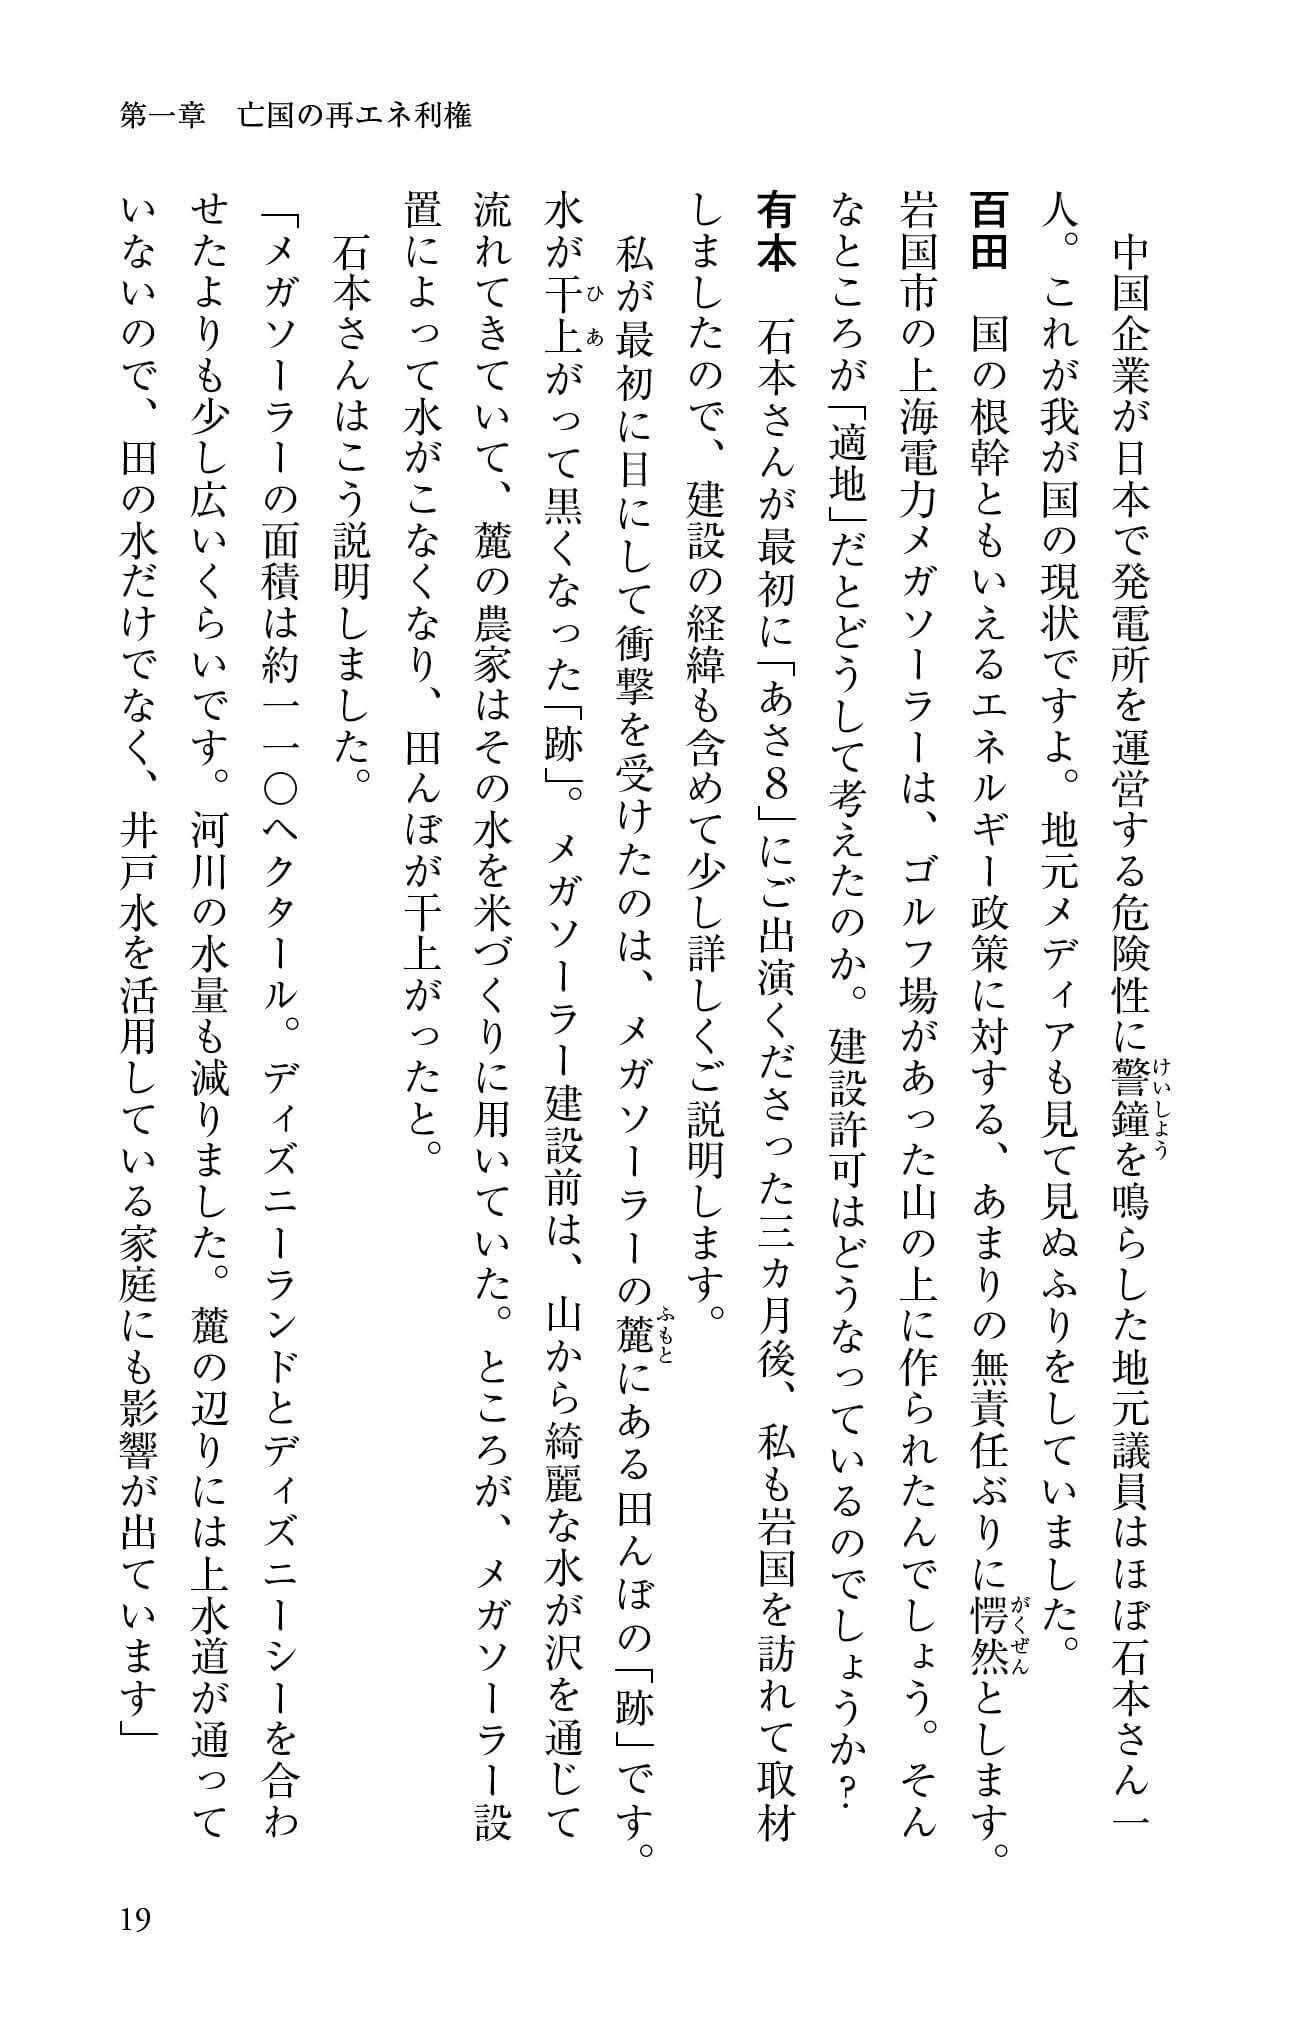 第一章　亡国の再エネ利権
　中国企業が日本で発電所を運営する危険性に警鐘を鳴らした地元議員はほぼ石本さん一
けいしょう
人。これが我が国の現状ですよ。地元メディアも見て見ぬふりをしていました。
百田　国の根幹ともいえるエネルギー政策に対する、あまりの無責任ぶりに愕然とします。
がくぜん
岩国市の上海電力メガソーラーは、ゴルフ場があった山の上に作られたんでしょう。そん
なところが「適地」だとどうして考えたのか。建設許可はどうなっているのでしょうか？
有本　石本さんが最初に「あさ８」にご出演くださった三カ月後、私も岩国を訪れて取材
しましたので、建設の経緯も含めて少し詳しくご説明します。
　私が最初に目にして衝撃を受けたのは、メガソーラーの麓にある田んぼの「跡」です。
ふもと
水が干上がって黒くなった「跡」。メガソーラー建設前は、山から綺麗な水が沢を通じて
ひ あ
流れてきていて、麓の農家はその水を米づくりに用いていた。ところが、メガソーラー設
置によって水がこなくなり、田んぼが干上がったと。
　石本さんはこう説明しました。
「メガソーラーの面積は約一一〇ヘクタール。ディズニーランドとディズニーシーを合わ
せたよりも少し広いくらいです。河川の水量も減りました。麓の辺りには上水道が通って
いないので、田の水だけでなく、井戸水を活用している家庭にも影響が出ています」
19